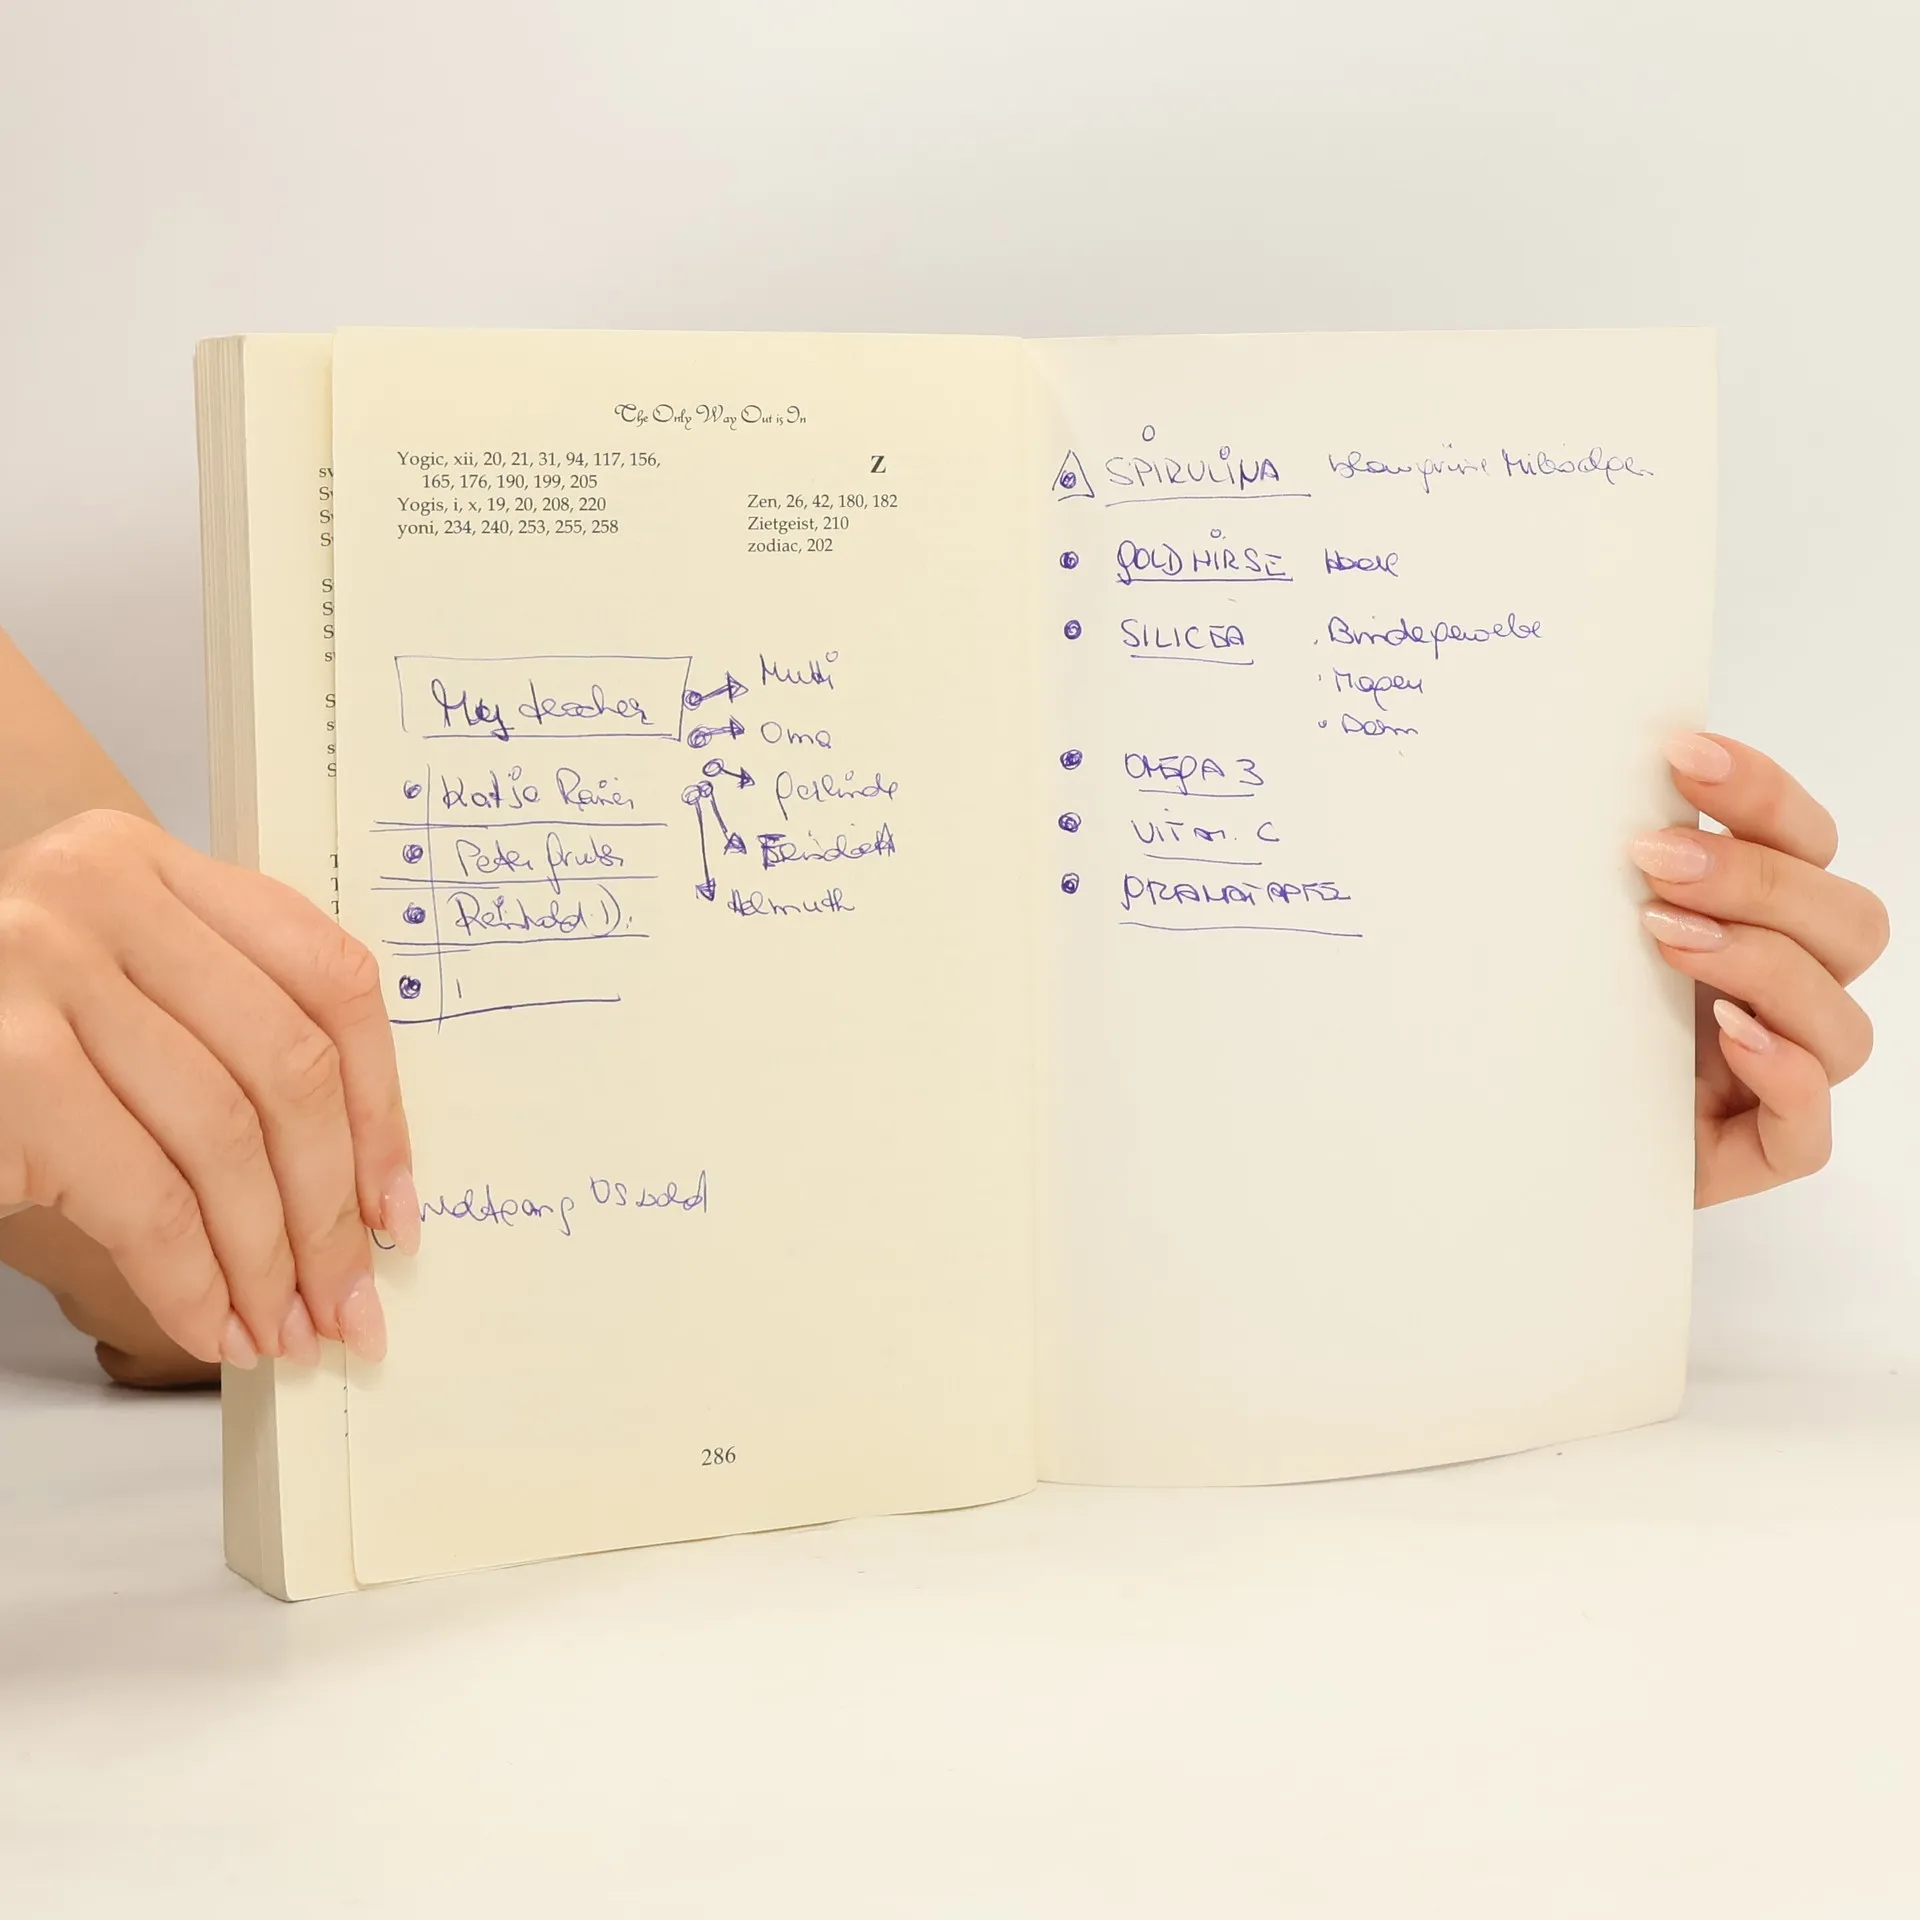 The Only Way Out is In
Yogic, xii, 20, 21, 31, 94, 117, 156,
165, 176, 190, 199, 205
Yogis, i, x, 19, 20, 208, 220
yoni, 234, 240, 253, 255, 258
Z
Zen, 26, 42, 180, 182
Zietgeist, 210
zodiac, 202
My teacher
Mutti
Oma
Gerlinde
Helmuth
Katja Rainer
Peter Gruber
Reinhold D.
Wolfgang Osswald
286
SPIRULINA blaugrüne Mikroalgen
GOLDHIRSE Haare
SILICEA Bindegewebe
Magen
Darm
OMEGA 3
VITAM. C
GRANATAPFEL